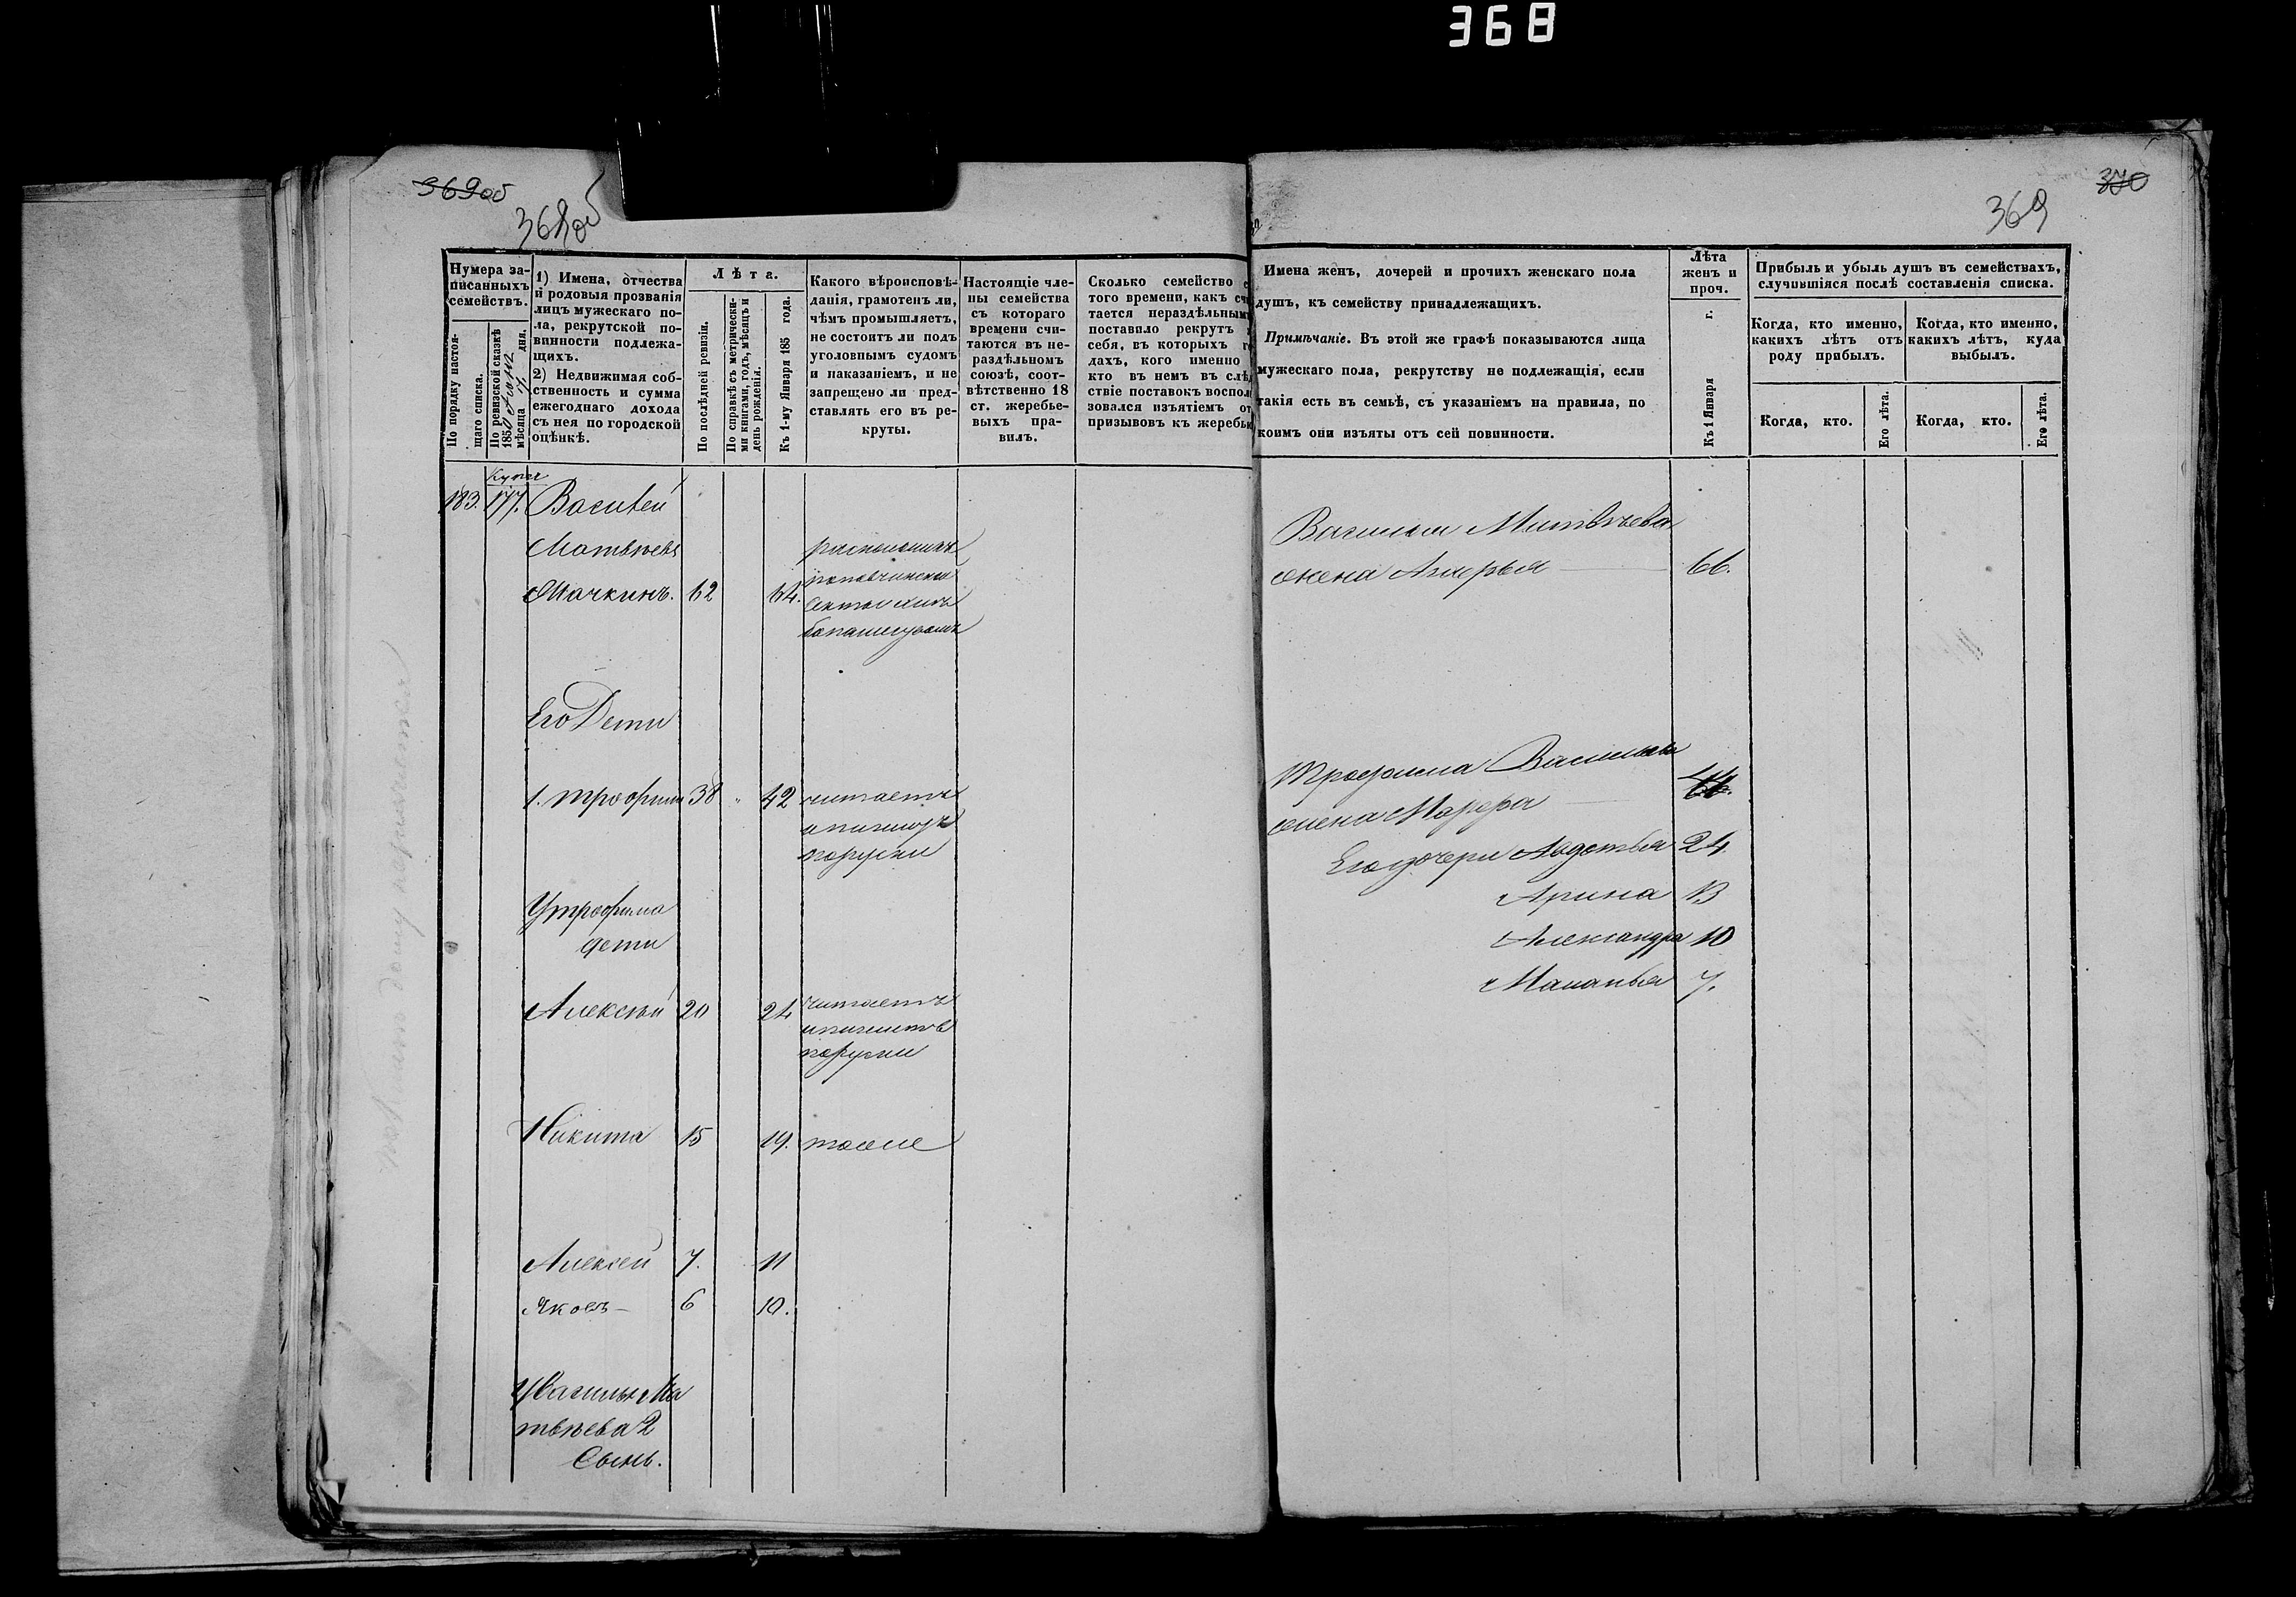 368
369об
368об
Нумера за-
писанныхъ
семействъ.
По порядку настоя-
щаго списка.
По ревизской сказкѣ
185
мѣсяца дня.
1) Имена, отчества
и родовыя прозванія
лицъ мужескаго по-
ла, рекрутской по-
винности подлежа-
щихъ.
2) Недвижимая соб-
ственность и сумма
ежегоднаго дохода
съ нея по городской
оцѣнкѣ.
Лѣта.
По послѣдней ревизіи.
По справкѣ съ метрически-
ми книгами, годъ, мѣсяцъ и
день рожденія.
Къ 1-му Января 185 года.
Какого вѣроисповѣ-
данія, грамотенъ ли,
чѣмъ промышляетъ,
не состоитъ ли подъ
уголовнымъ судомъ
и наказаніемъ, и не
запрещено ли пред-
ставлять его въ ре-
круты.
Настоящіе чле-
ны семейства
съ котораго
времени счи-
таются въ не-
раздѣльномъ
союзѣ, соот-
вѣтственно 18
ст. жеребье-
выхъ пра-
вилъ.
Сколько семейство с
того времени, какъ сч
тается нераздѣльным
поставило рекрутъ
себя, въ которыхъ г
дахъ, кого именно
кто въ немъ въ слѣд
ствіе поставокъ воспол
зовался изъятіемъ от
призывовъ къ жеребь
183. 177. Василей
Матвѣевъ раскольникъ
Мачкинъ. 62 64.
Его Дети
1. Трофимъ 38 " 42 читаетъ
и пишетъ
поруски
У трофима
дети
Алексѣй 20 24 читаетъ
и пишетъ
поруски
Никита 15 19. тоже
Алексей 7. 11
Яковъ 6 10.
У Василья Ма
твѣева 2
Сынъ.
370
369
Имена женъ, дочерей и прочихъ женскаго пола
душъ, къ семейству принадлежащихъ.
Примѣчаніе. Въ этой же графѣ показываются лица
мужескаго пола, рекрутству не подлежащія, если
такія есть въ семьѣ, съ указаніемъ на правила, по
коимъ они изъяты отъ сей повинности.
Лѣта
женъ и
проч.
Къ 1 Января г.
Прибыль и убыль душъ въ семействахъ,
случившіяся послѣ составленія списка.
Когда, кто именно,
какихъ лѣтъ отъ
роду прибылъ.
Когда, кто именно,
какихъ лѣтъ, куда
выбылъ.
Когда, кто.
Его лѣта.
Когда, кто.
Его лѣта.
Василья Матвѣева
жена 66.
Трофима Васильева
жена Марфа 44.
Его дочери Авдотья 24
Арина 13
Александра 10
Маланья 7.